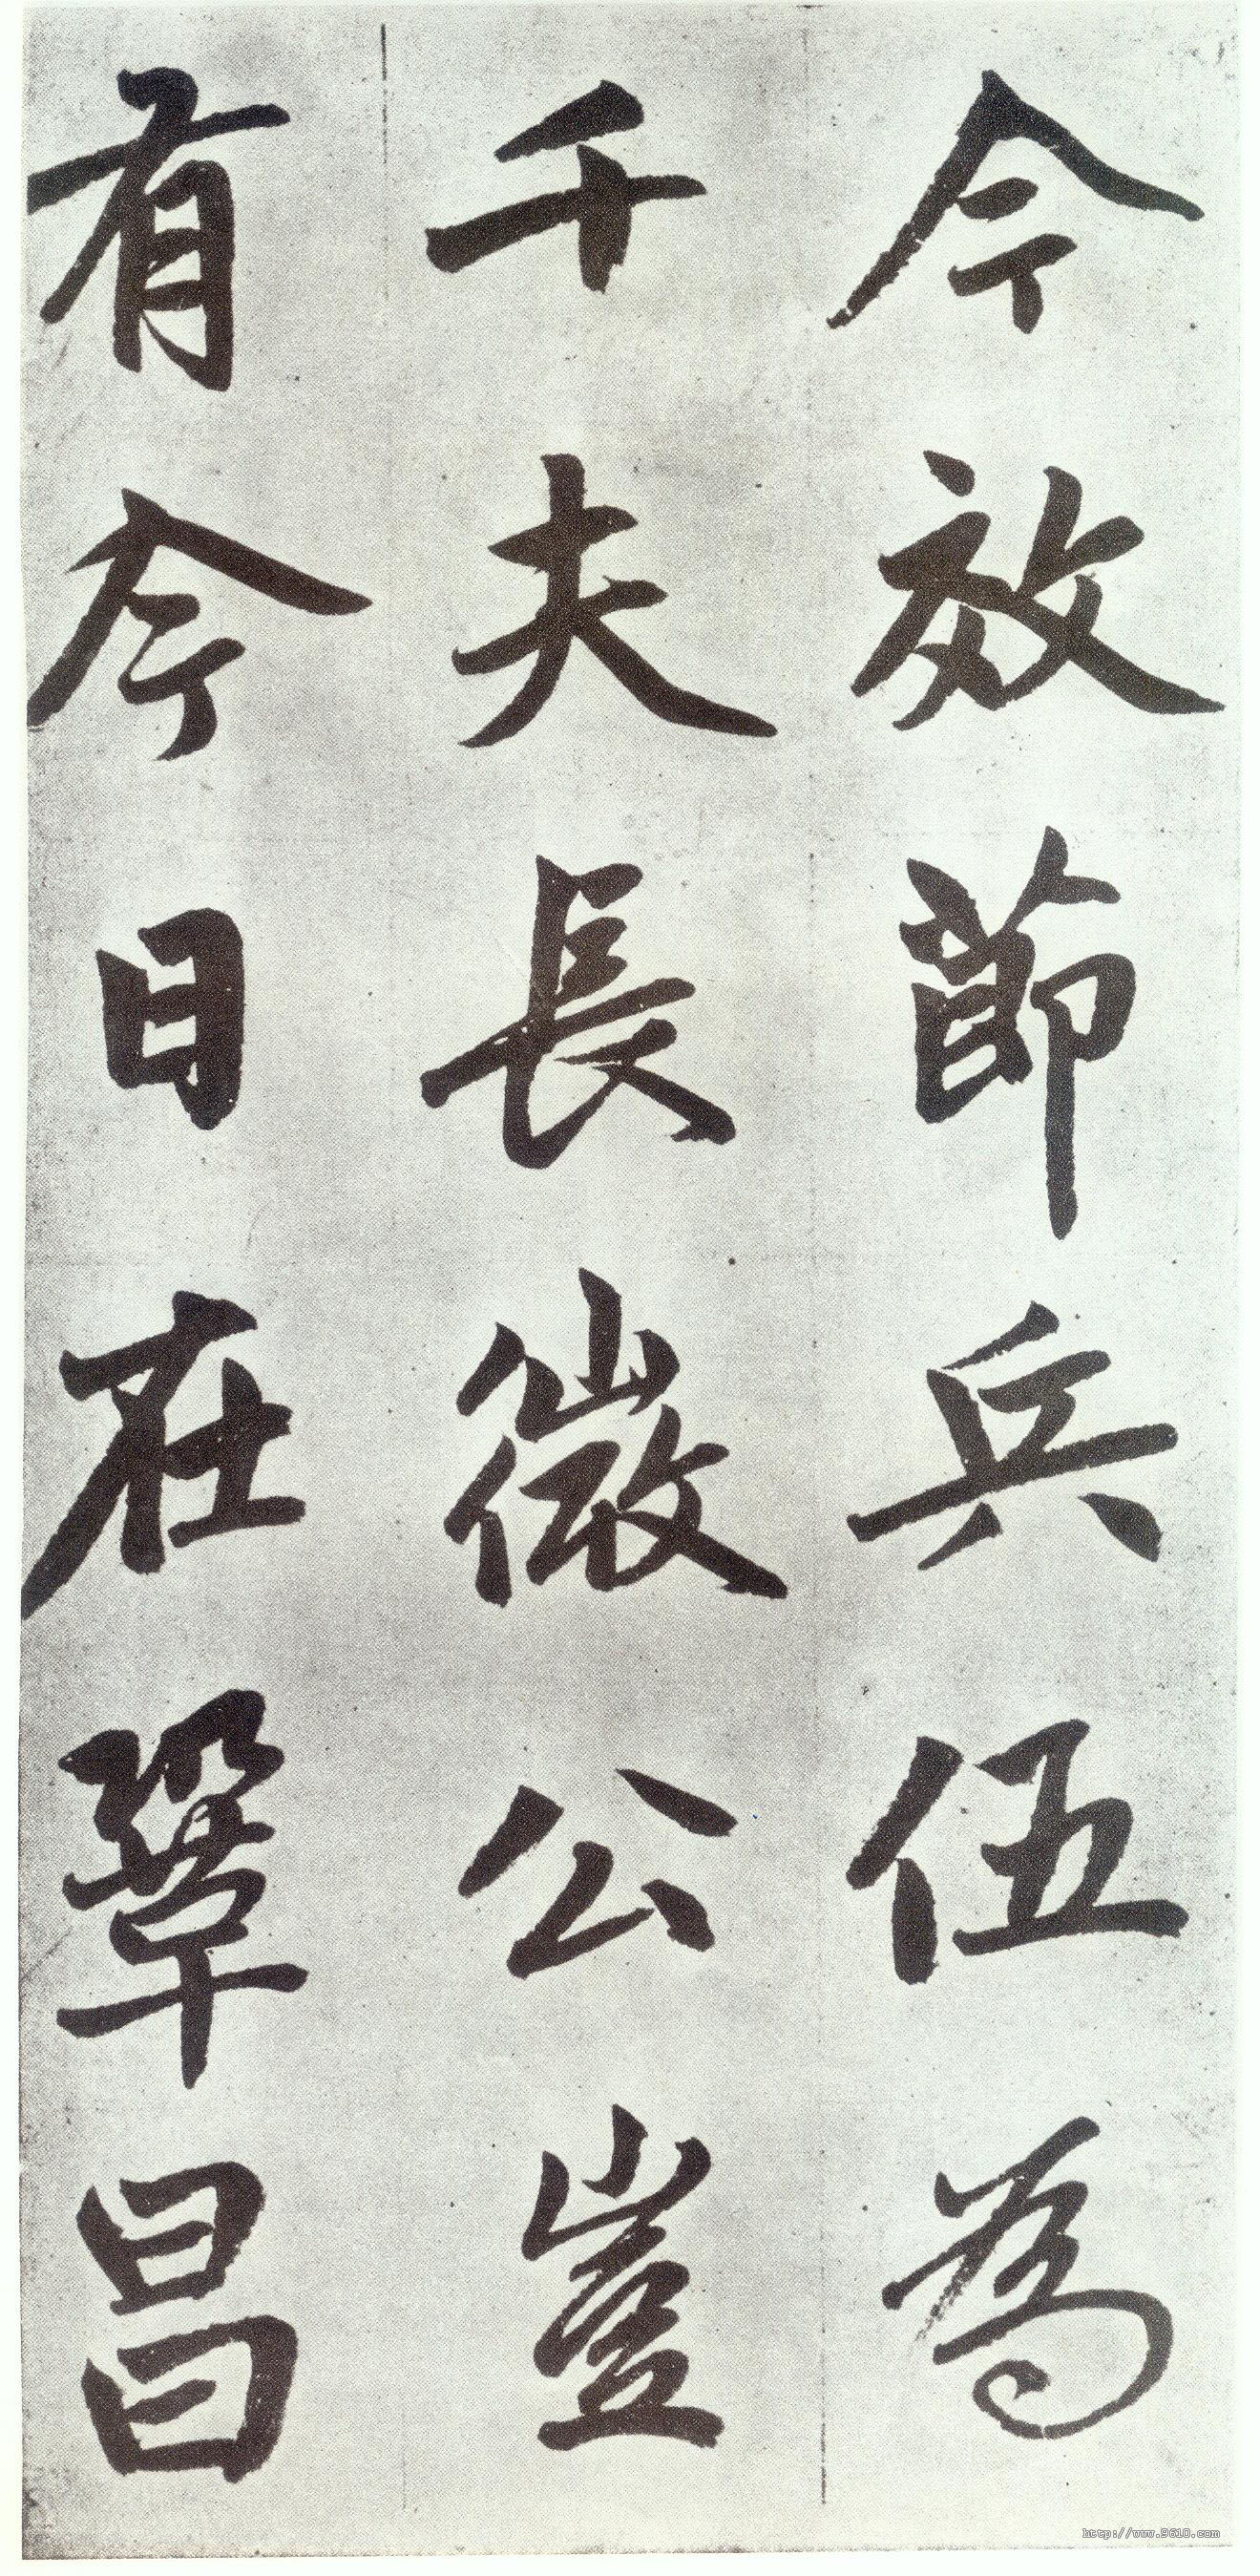 今效節兵伍為
千夫長微公豈
有今日在鞏昌
http://www.9610.com